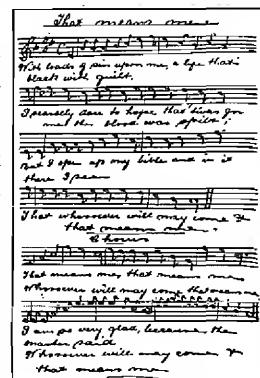 That means me
With loads of sin upon me, a life that's
black with guilt,
I scarcely dare to hope that Jesus for
me the blood was spilt;
But I open up my bible and in it
there I
That whosoever will may come &
that means me.
Chorus
That means me, that means me
Whosoever will may come that means me
I am so very glad, because the
master said
Whosoever will may come &
that means me